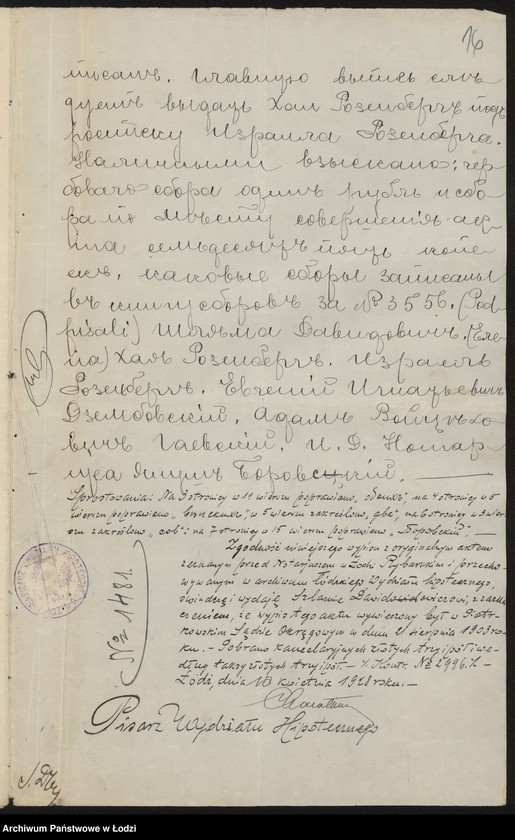 16
писанъ. Главную выпись слѣ
дуетъ выдать Хаи Розенбергъ подъ
росписку Израиля Розенберга.
Наличными взыскано: гер
боваго сбора одинъ рубль и сбо
ра по мѣсту совершенія ак
та семьдесятъ пять копѣ
екъ, каковые сборы записаны
въ книгу сборовъ за № 3556. (Pod-
pisali) Шлямa Давидовичъ,
Хая Розенбергъ. Израиль
Розенбергъ. Евгеній Игнатьевичъ
Дзембовскій. Адамъ Войцѣхо
вичъ Гаевскій. И. Д. Нотар
іуса Боровскій.
Sprostowania: Na 3 stronicy w 11 wierszu poprawiono, na 4 stronicy w 5
wierszu poprawiono w 5 wierszu zakreślono, na 6 stronicy w wier
szu zakreślono „соб"; na 7 stronicy w 15 wierszu poprawiono „Боровскій". —
Zgodność niniejszego wypisu z oryginalnym aktem
zeznanym przed Notarjuszem w Łodzi Rybarskim i przecho
wywanym w archiwum Łódzkiego Wydziału Hypotecznego,
świadczę i wydaję Szlamie Dawidowiczowi z zazna
czeniem, że wypis tego aktu wywieszony był w Piotr
kowskim Sądzie Okręgowym w dniu 21 sierpnia 1903 ro
ku. — Pobrano kancelaryjnych złotych trzy i pół i we
dług taksy złotych trzy i pół. — Kontr. № 2996.
Łódź, dnia 10 kwietnia 1928 roku. —
Pisarz Wydziału Hipotecznego
№ 1481.
Archiwum Państwowe w Łodzi